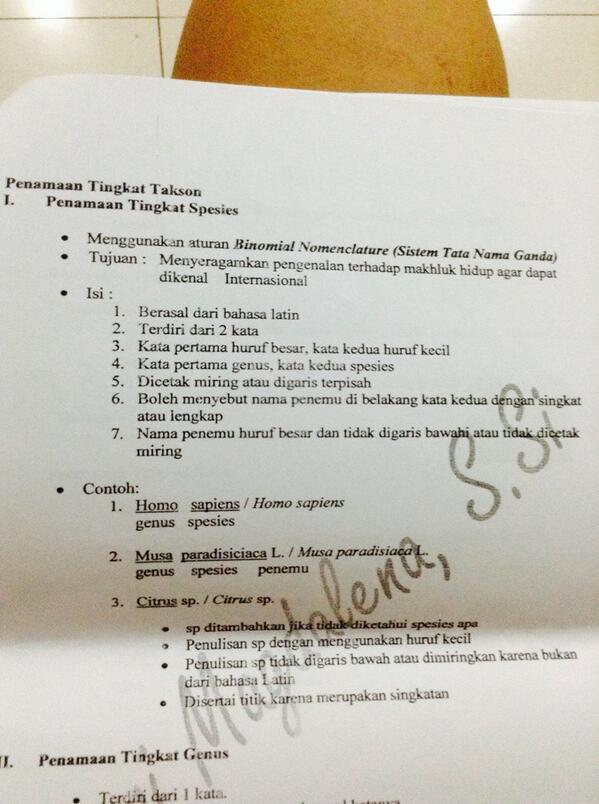 Penamaan Tingkat Takson
I. Penamaan Tingkat Spesies
• Menggunakan aturan Binomial Nomenclature (Sistem Tata Nama Ganda)
• Tujuan : Menyeragamkan pengenalan terhadap makhluk hidup agar dapat
dikenal Internasional
• Isi :
1. Berasal dari bahasa latin
2. Terdiri dari 2 kata
3. Kata pertama huruf besar, kata kedua huruf kecil
4. Kata pertama genus, kata kedua spesies
5. Dicetak miring atau digaris terpisah
6. Boleh menyebut nama penemu di belakang kata kedua dengan singkat
atau lengkap
7. Nama penemu huruf besar dan tidak digaris bawahi atau tidak dicetak
miring
• Contoh:
1. Homo sapiens / Homo sapiens
genus spesies
2. Musa paradisiciaca L. / Musa paradisiaca L.
genus spesies penemu
3. Citrus sp. / Citrus sp.
• sp ditambahkan jika tidak diketahui spesies apa
• Penulisan sp dengan menggunakan huruf kecil
• Penulisan sp tidak digaris bawah atau dimiringkan karena bukan
dari bahasa Latin
• Disertai titik karena merupakan singkatan
Magdalena, S.Si
II. Penamaan Tingkat Genus
• Terdiri dari 1 kata.